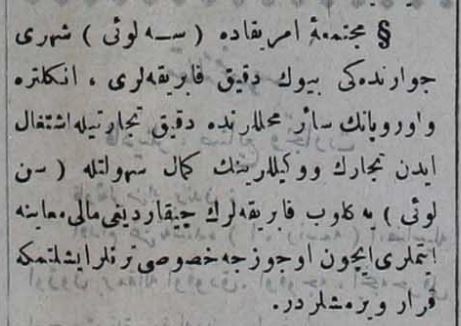 § مجتمعهٔ امریقاده ( ســه لوئی ) شهری
جوارنده‌کی بیوك دقیق فابریقه‌لری ، انکلتره
واوروپانك سائر محللرنده دقیق تجارتیله اشتغال
ایدن تجارك ووکیللرینك کمال سهولتله ( سن
لوئی ) یه کلوب فابریقه‌لرك چیقاردیغی مالی معاینه
ایتملری ایچون اوجوزجه خصوصی ترنلر ایشلتمکه
قرار ویرمشلردر.